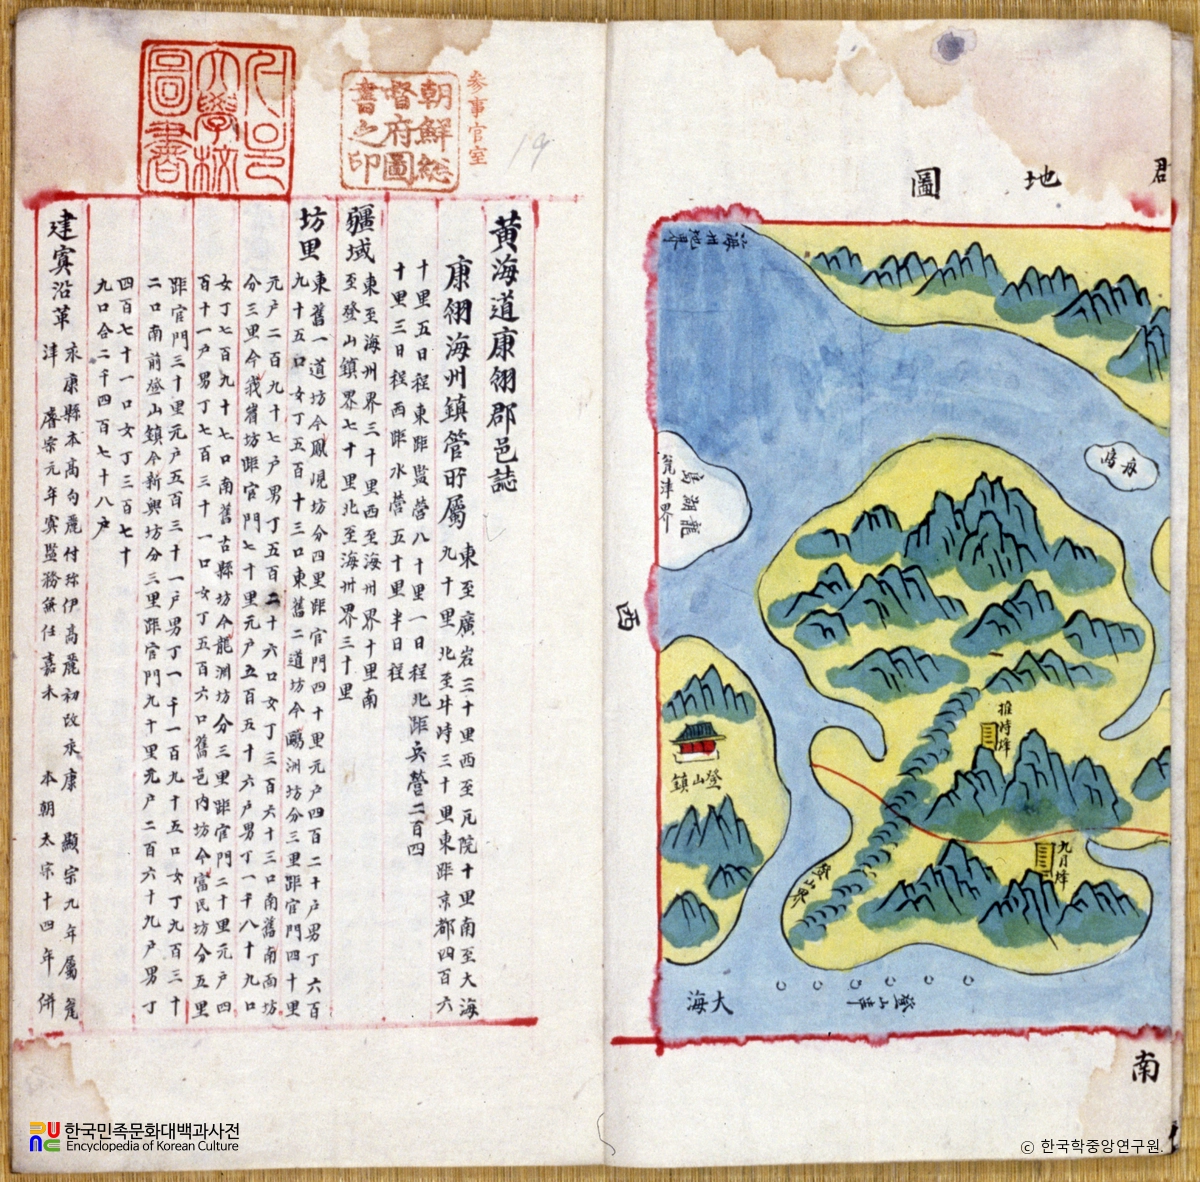 君地圖
海州地界
龍湖島
瓮津界
西
推峙烽
登山鎮
九月烽
登山界
登山串
大海
南
參事官室
朝鮮総
督府圖
書之印
서울
大學校
圖書
19
黃海道康翎郡邑誌
康翎海州鎮管所屬 東至廣岩三十里西至瓦院十里南至大海
九十里北至牛峙三十里東距京都四百六
十里五日程東距監營八十里一日程北距兵營二百四
十里三日程西距水營五十里半日程
疆域 東至海州界三十里西至海州界十里南
至登山鎮界七十里北至海州界三十里
坊里 東舊一道坊今鳳現坊分四里距官門四十里元戶四百二十戶男丁六百
九十五口女丁五百十三口東舊二道坊今鷗洲坊分三里距官門四十里
元戶二百九十七戶男丁五百二十六口女丁三百六十三口南舊南面坊
今分三里今峩眉坊距官門七十里元戶五百五十六戶男丁一千八十九口
女丁七百九十七口南舊古縣坊今龍淵坊分三里距官門二十里元戶四
百十一戶男丁七百三十一口女丁五百六口舊邑內坊今富民坊分五里
距官門三十里元戶五百三十一戶男丁一千一百九十五口女丁九百三十
二口南前登山鎮今新興坊分三里距官門九十里元戶二百六十九戶男丁
四百七十一口女丁三百七十
九口合二千四百七十八戶
建寘沿革 永康縣本高句麗付珍伊高麗初改永康 顯宗九年屬瓮
津 睿宗元年寘監務無任嘉禾 本朝太宗十四年併
한국민족문화대백과사전
Encyclopedia of Korean Culture
© 한국학중앙연구원